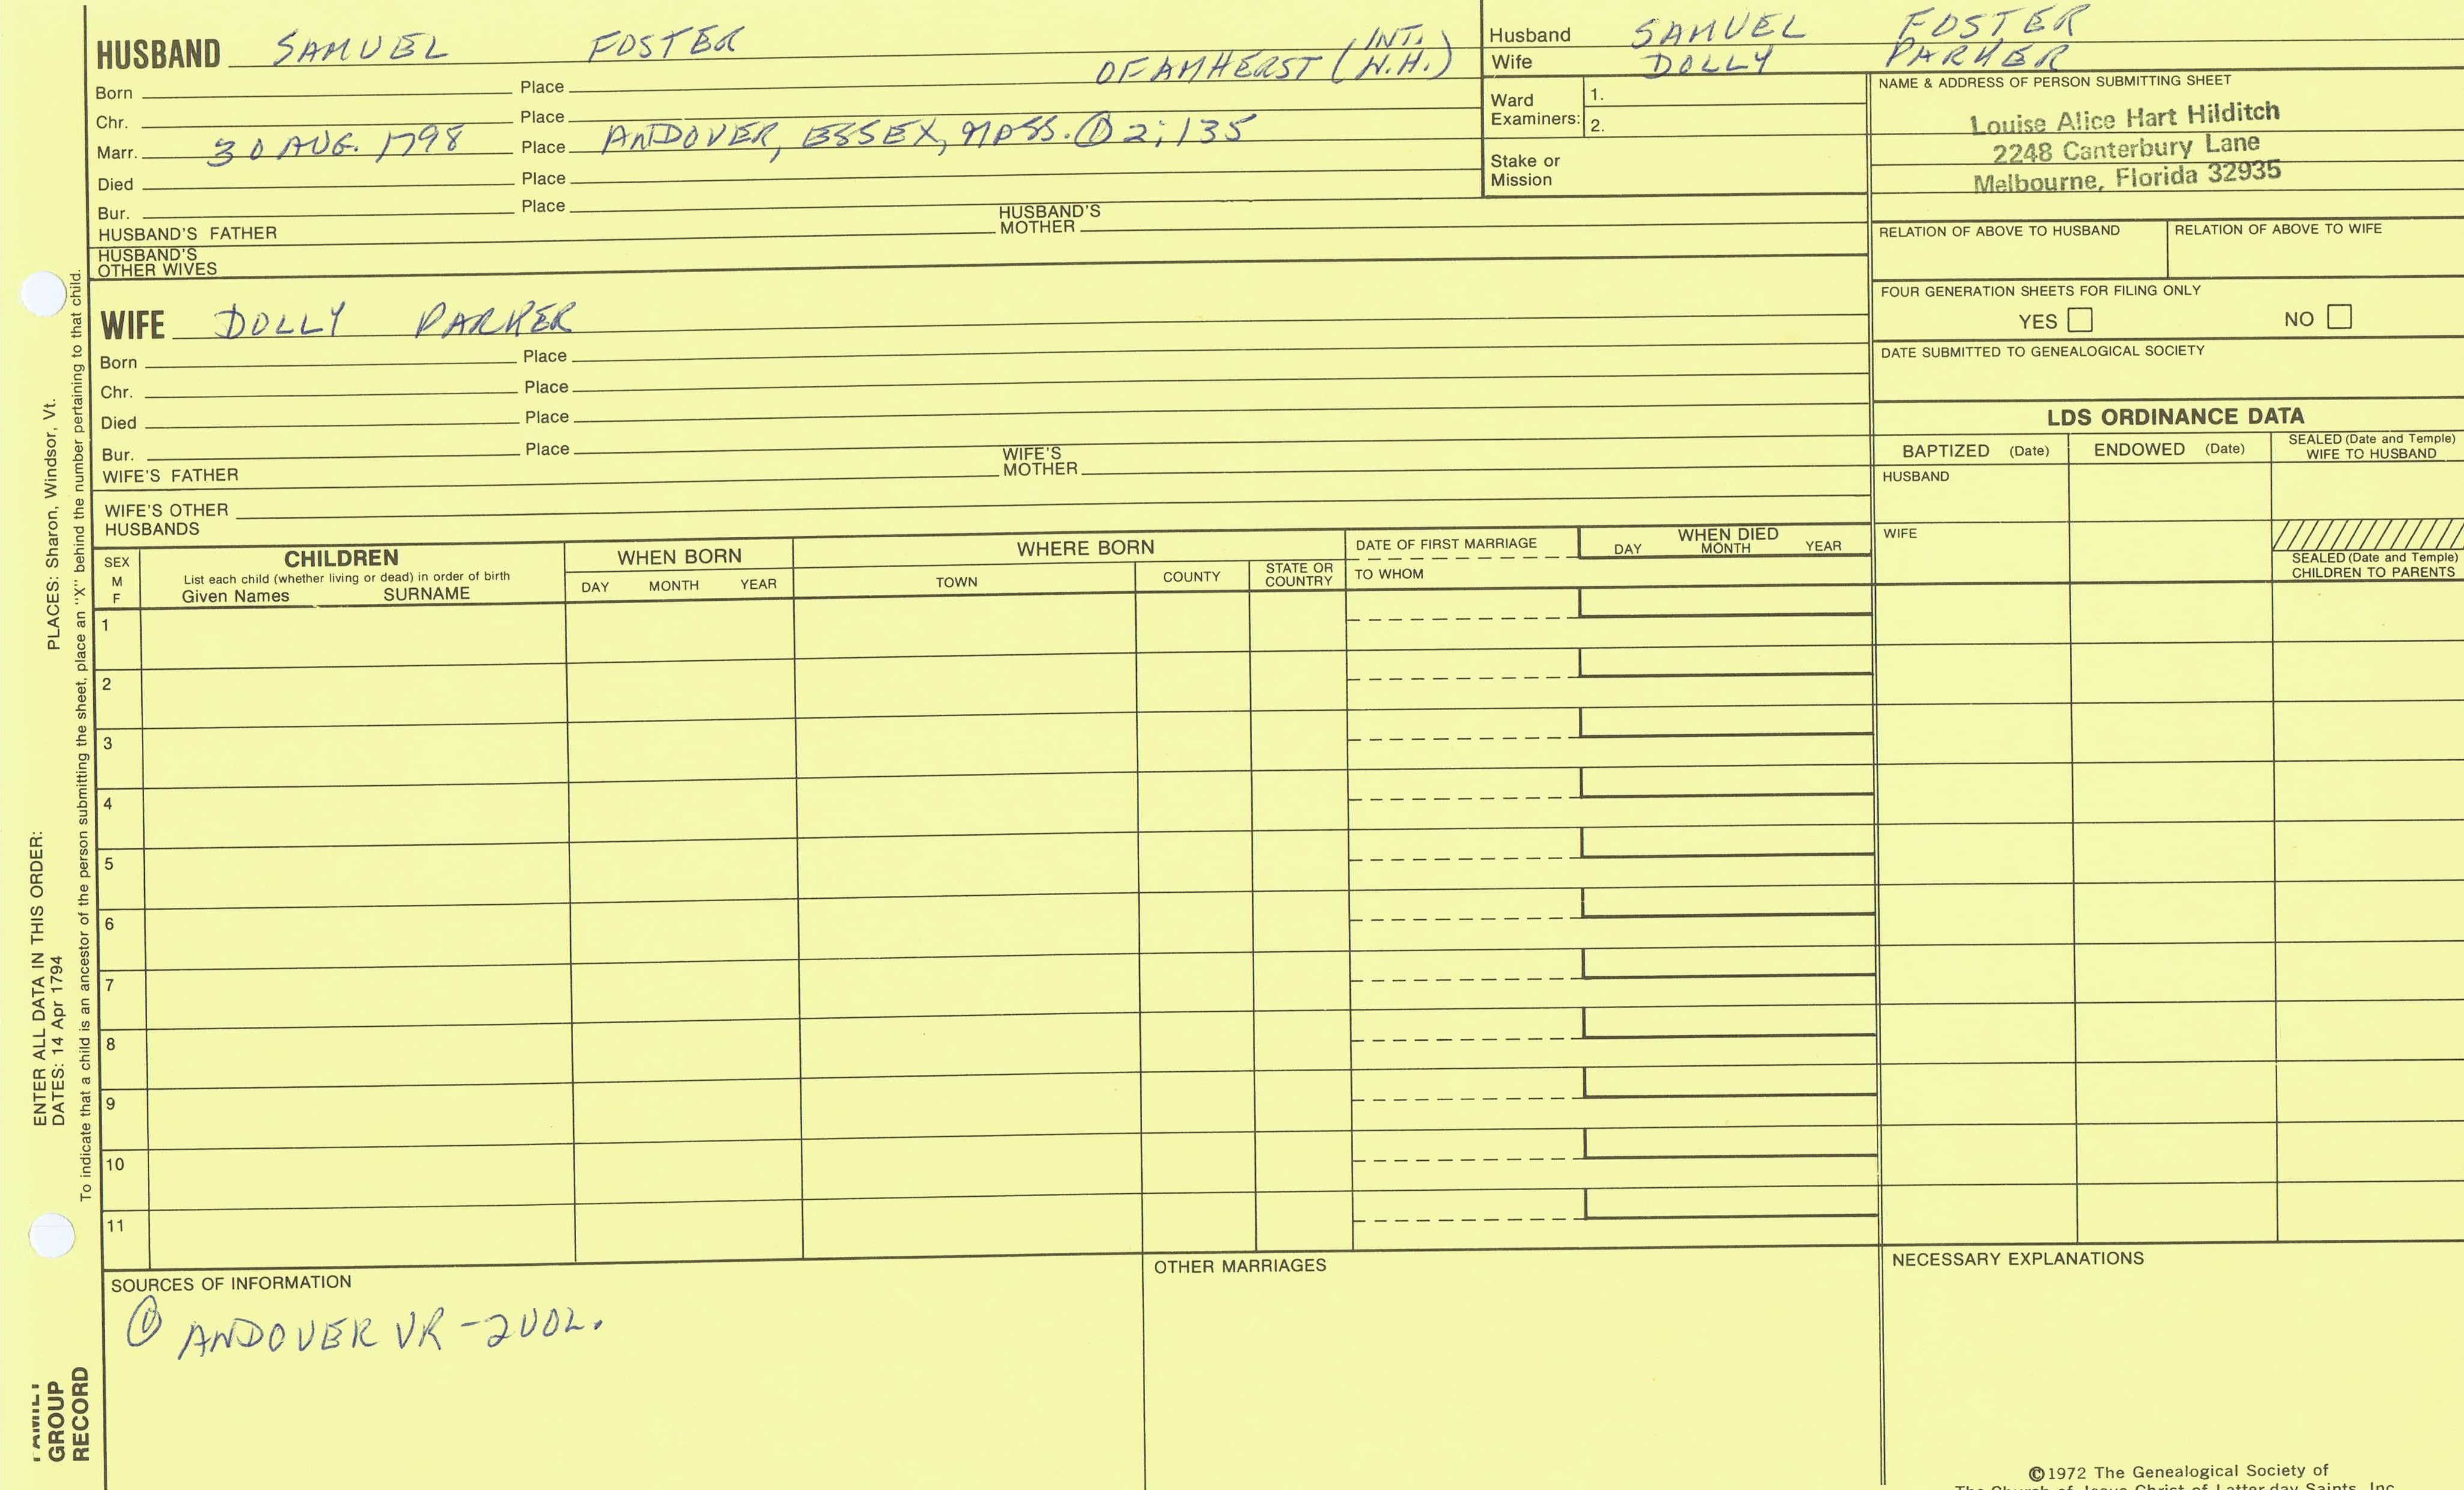 HUSBAND SAMUEL FOSTER OF AMHERST (INT. N.H.)
Born Place
Chr. Place
Marr. 30 AUG. 1798 Place ANDOVER, ESSEX, MASS. ① 2:135
Died Place
Bur. Place
HUSBAND'S FATHER HUSBAND'S MOTHER
HUSBAND'S OTHER WIVES
Husband SAMUEL FOSTER
Wife DOLLY PARKER
Ward Examiners: 1.
2.
Stake or Mission
NAME & ADDRESS OF PERSON SUBMITTING SHEET
Louise Alice Hart Hilditch
2248 Canterbury Lane
Melbourne, Florida 32935
RELATION OF ABOVE TO HUSBAND RELATION OF ABOVE TO WIFE
FOUR GENERATION SHEETS FOR FILING ONLY
YES NO
DATE SUBMITTED TO GENEALOGICAL SOCIETY
WIFE DOLLY PARKER
Born Place
Chr. Place
Died Place
Bur. Place
WIFE'S FATHER WIFE'S MOTHER
WIFE'S OTHER HUSBANDS
LDS ORDINANCE DATA
BAPTIZED (Date) ENDOWED (Date) SEALED (Date and Temple) WIFE TO HUSBAND
HUSBAND
WIFE
SEALED (Date and Temple) CHILDREN TO PARENTS
SEX M F
CHILDREN
List each child (whether living or dead) in order of birth
Given Names SURNAME
WHEN BORN
DAY MONTH YEAR
WHERE BORN
TOWN COUNTY STATE OR COUNTRY
DATE OF FIRST MARRIAGE
TO WHOM
WHEN DIED
DAY MONTH YEAR
1
2
3
4
5
6
7
8
9
10
11
SOURCES OF INFORMATION
① ANDOVER VR - 2 VOL.
OTHER MARRIAGES
NECESSARY EXPLANATIONS
©1972 The Genealogical Society of
The Church of Jesus Christ of Latter-day Saints, Inc.
ENTER ALL DATA IN THIS ORDER:
DATES: 14 Apr 1794 PLACES: Sharon, Windsor, Vt.
To indicate that a child is an ancestor of the person submitting the sheet, place an "X" behind the number pertaining to that child.
FAMILY
GROUP
RECORD